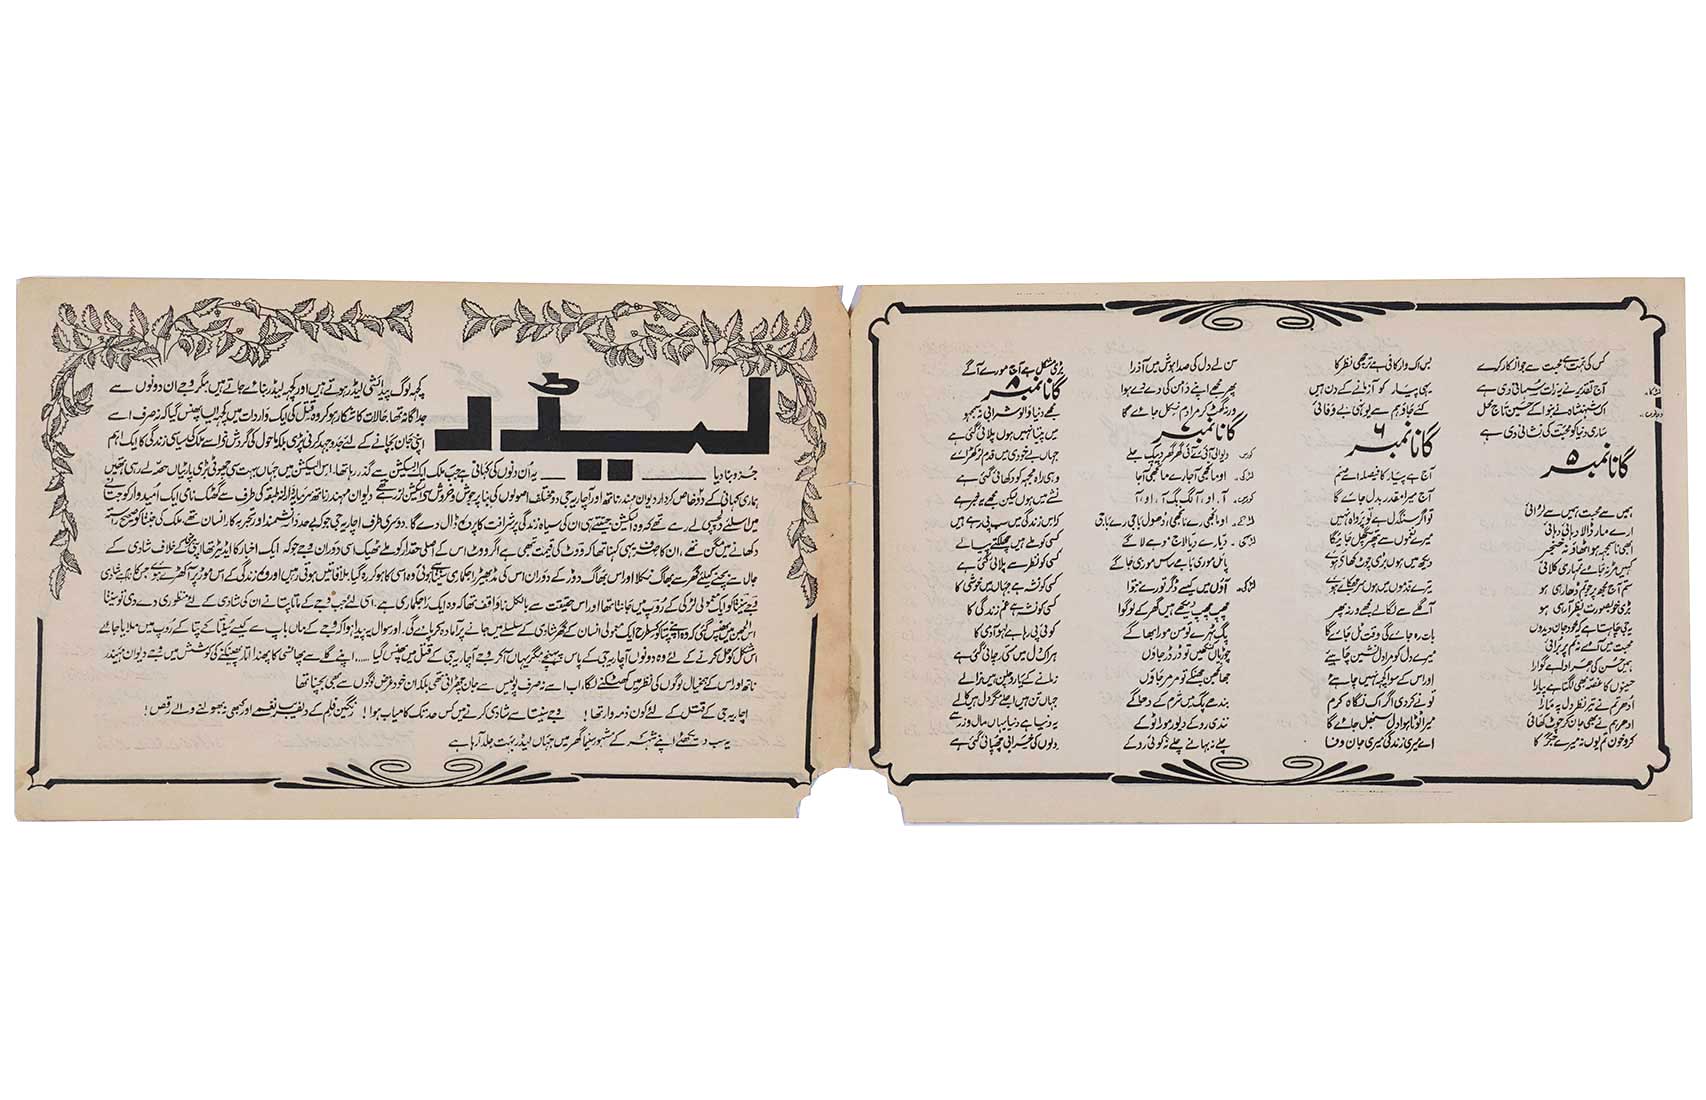 لیڈر
کچھ لوگ پیدائشی لیڈر ہوتے ہیں اور کچھ لیڈر بنا دیئے جاتے ہیں مگر وجے ان دونوں سے
جداگانہ تھا حالات کا شکار ہو کر وہ قتل کی ایک واردات میں کچھ ایسا پھنس گیا کہ نہ صرف اسے
اپنی جان بچانے کے لئے جدوجہد کرنی پڑی بلکہ ماحول کی گردش نے اسے ملک کی سیاسی زندگی کا ایک اہم
جزو بنا دیا ـــــ یہ ان دنوں کی کہانی ہے جب ملک ایک الیکشن سے گذر رہا تھا۔ اس الیکشن میں جہاں بہت سی چھوٹی بڑی پارٹیاں حصہ لے رہی تھیں
ہماری کہانی کے دو خاص کردار دیوان مہندر ناتھ اور آچاریہ جی دو مختلف اصولوں کی بنا پر جوش و خروش سے الیکشن لڑ رہے تھے دیوان مہندر ناتھ سرمایہ دار طبقہ کی طرف سے کھٹک نامی ایک امیدوار کو جتانے
میں اسلئے دلچسپی لے رہے تھے کہ وہ الیکشن جیتتے ہی ان کی سیاہ زندگی پر شرافت کا پردہ ڈال دے گا۔ دوسری طرف آچاریہ جی جو بے حد دانشمند اور تجربہ کار انسان تھے ملک کی جنتا کو صحیح راستہ
دکھانے میں مگن تھے، ان کا صرف یہی کہنا تھا کہ ووٹ کی قیمت تبھی ہے اگر ووٹ اس کے اصلی حقدار کو ملے ٹھیک اسی دوران وجے جو کہ ایک اخبار کا ایڈیٹر تھا اپنی کے خلاف شادی کے
جال سے بچنے کیلئے گھر سے بھاگ نکلا اور اس بھاگ دوڑ کے دوران اس کی مڈبھیڑ راجکماری سنیتا سے ہوئی وہ اسی کا ہو کر رہ گیا ملاقاتیں ہوتی رہیں اور وہ زندگی کے اس موڑ پر آ کھڑے ہوئے جس کا نام ہے شادی
وجے سنیتا کو ایک معمولی لڑکی کے روپ میں جانتا تھا اور اس حقیقت سے بالکل ناواقف تھا کہ وہ ایک راجکماری ہے۔ اسی لئے جب وجے کے ماتا پتا نے ان کی شادی کے لئے منظوری دے دی تو سنیتا
اس الجھن میں پھنس گئی کہ وہ اپنے پتا کو کس طرح ایک معمولی انسان کے گھر شادی کے سلسلے میں جانے پر آمادہ کر پائے گی۔ اور سوال یہ پیدا ہوا کہ وجے کے ماں باپ سے کیسے سنیتا کے پتا کے روپ میں ملایا جائے
اس مشکل کو حل کرنے کے لئے وہ دونوں آچاریہ جی کے پاس پہنچے مگر یہاں آ کر وجے آچاریہ جی کے قتل میں پھنس گیا ..... اپنے گلے سے پھانسی کا پھندا اتار پھینکنے کی کوشش میں وجے دیوان مہندر
ناتھ اور اس کے ہمخیال لوگوں کی نظر میں کھٹکنے لگا، اب اسے نہ صرف پولیس سے جان چھڑانی تھی بلکہ ان خود غرض لوگوں سے بھی بچنا تھا
آچاریہ جی کے قتل کے لئے کون ذمہ دار تھا! وجے سنیتا سے شادی کرنے میں کس حد تک کامیاب ہوا! رنگین فلم کے دلفریب نغمے اور کبھی نہ بھولنے والے رقص!
یہ سب دیکھئے اپنے شہر کے مشہور سنیما گھر میں جہاں لیڈر بہت جلد آرہا ہے
کس کی ہمت ہے محبت سے جو انکار کرے
آج تقدیر نے یہ رات سہانی دی ہے
اک شہنشاہ نے بنوا کے حسیں تاج محل
ساری دنیا کو محبت کی نشانی دی ہے
گانا نمبر ۵
ہمیں سے محبت ہمیں سے لڑائی
ارے مار ڈالا دہائی دہائی
ابھی ناسمجھ ہو اٹھاؤ نہ خنجر
کہیں مڑ نہ جائے تمہاری کلائی
ستم آج مجھ پر جو تم ڈھا رہی ہو
بڑی خوبصورت نظر آ رہی ہو
یہ جی چاہتا ہے کہ خود جان دیدوں
محبت میں آئے نہ تم پر برائی
ہمیں حسن کی ہر ادا ہے گوارا
حسینوں کا غصہ بھی لگتا ہے پیارا
ادھر تم نے تیر نظر دل پہ مارا
ادھر ہم نے بھی جان کر چوٹ کھائی
کرو خون تم یوں نہ میرے جگر کا
بس اک وار کافی ہے ترچھی نظر کا
یہی پیار کو آزمانے کے دن ہیں
کئے جاؤ ہم سے یوں ہی بے وفائی
گانا نمبر ۶
آج ہے پیار کا فیصلہ اے صنم
آج میرا مقدر بدل جائے گا
تو اگر سنگدل ہے تو پرواہ نہیں
میرے نغموں سے پتھر پگھل جائیگا
دیکھ میں ہوں بڑی چوٹ کھائی ہوئی
تیرے قدموں میں ہوں سر جھکائے ہوئے
آ گلے سے لگا لے مجھے ورنہ پھر
بات رہ جائے گی وقت ٹل جائے گا
میرے دل کو مرا دلنشین چاہیئے
اور اس کے سوا کچھ نہیں چاہیئے
تو نے کر دی اگر اک نگاہ کرم
میرا ٹوٹا ہوا دل سنبھل جائے گا
اے میری زندگی میری جان وفا
سن لے دل کی صدا ہوش میں آ ذرا
پھر مجھے اپنے دامن کی دے دے ہوا
ورنہ گھٹ کر مرا دم نکل جائے گا
گانا نمبر ۷
کورس۔ دیوالی آئی رے آئی گھر گھر دیپک جلے
لڑکی۔ او مانجھی آ جا رے مانجھی آ جا
کورس۔ آ، او، آ لگ بگ آ، او، آ
لڑکے۔ او مانجھی رے مانجھی، ڈھول باجی رے باجی
لڑکی۔ دیا رے دیا لاج موہے لاگے
پاس موری بابے ساس موری جاگے
لڑکی۔ آؤں میں کیسے ڈگر تورے متوا
چھپ چھپ دیکھے ہیں گھر کے لوگوا
پگ ٹہرے تو من مورا بھاگے
چوڑیاں کھنکیں تو ڈر ڈر جاؤں
جھانجھن جھنکے تو مر مر جاؤں
بندھے پگ میں شرم کے دھاگے
نندی روکے دیور مورا ٹوکے
چلے نہ بہانے چلے نہ کوئی روکے
بڑی مشکل ہے آج مورے آگے
گانا نمبر ۸
مجھے دنیا والو شرابی نہ سمجھو
میں پیتا نہیں ہوں پلائی گئی ہے
جہاں بے خودی میں قدم لڑکھڑائے
وہی راہ مجھ کو دکھائی گئی ہے
نشے میں ہوں لیکن مجھے یہ خبر ہے
کہ اس زندگی میں سب پی رہے ہیں
کسی کو ملے ہیں چھلکتے پیالے
کسی کو نظر سے پلائی گئی ہے
کسی کو نشہ ہے جہاں میں خوشی کا
کسی کو نشہ ہے غم زندگی کا
کوئی پی رہا ہے لہو آدمی کا
ہر اک دل میں مستی رچائی گئی ہے
زمانے کے یارو چلن ہیں نرالے
جہاں تن ہیں اجلے مگر دل ہیں کالے
یہ دنیا ہے دنیا یہاں مال و زر سے
دلوں کی خرابی چھپائی گئی ہے